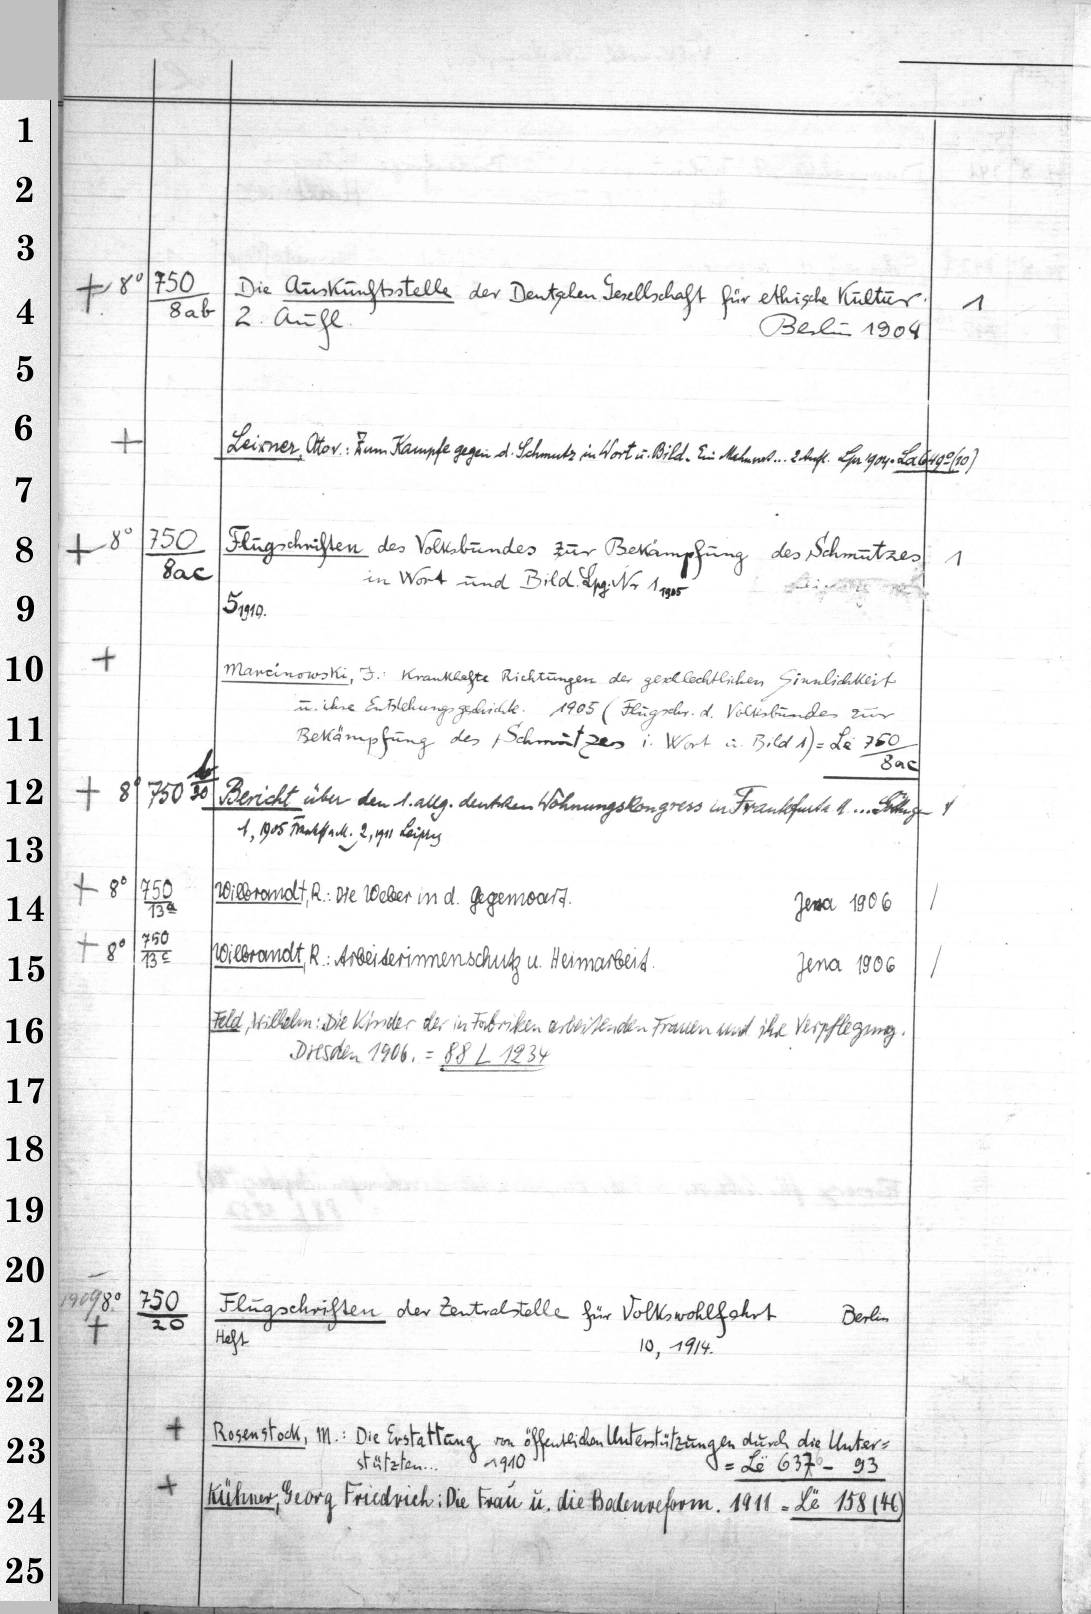 1
2
3
+ 8° 750/8ab Die Auskunftsstelle der Deutschen Gesellschaft für ethische Kultur. 1
4
2. Aufl. Berlin 1904
5
6
+ Leixner, Ottov.: Zum Kampfe gegen d. Schmutz in Wort u. Bild. Ein Mahnwort... 2 Aufl. Lpz 1904.
7
8
+ 8° 750/8ac Flugschriften des Volksbundes zur Bekämpfung des Schmutzes 1
in Wort und Bild. Lpg: Nr 1 1905
9
5 1910.
10
+ Marcinowski, J.: Krankhafte Richtungen der geschlechtlichen Sinnlichkeit
u. ihre Entstehungsgeschichte. 1905 (Flugschr. d. Volksbundes zur
11
Bekämpfung des Schmutzes i. Wort u. Bild 1) = Lë 750/8ac
12
+ 8° 750 Bericht über den 1. allg. deutschen Wohnungskongress in Frankfurt a M ...
1, 1905 Frankf a. M. 2, 1911 Leipzig
13
14
+ 8° 750/13a Wilbrandt, R.: Die Weber in d. Gegenwart. Jena 1906 /
15
+ 8° 750/13c Wilbrandt, R.: Arbeiterinnenschutz u. Heimarbeit. Jena 1906 /
16
Feld, Wilhelm: Die Kinder der in Fabriken arbeitenden Frauen und ihre Verpflegung.
Dresden 1906. = 88 L 1234
17
18
19
20
1909 8° 750/20 Flugschriften der Zentralstelle für Volkswohlfahrt Berlin
21
+ Heft 10, 1914.
22
+ Rosenstock, M.: Die Erstattung von öffentlichen Unterstützungen durch die Unter=
23
stützten... 1910 = Lë 637 - 93
24
+ Kühner, Georg Friedrich: Die Frau u. die Bodenreform. 1911 = Lë 158 (46)
25